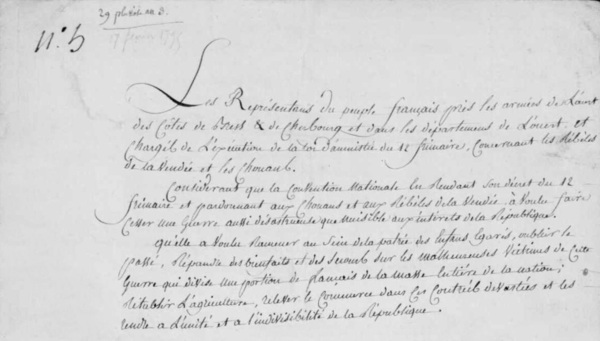 29 pluviôse an 3.
17 février 1795
N.° 5
Les Représentans du peuple français près les armées de L'ouest
des Côtes de Brest & de Cherbourg et dans les départemens de L'ouest, et
Chargés de L'exécution de la loi d'amnistie du 12 frimaire, Concernant les Rébéles
de la Vendée et les Chouans.
Considérant que la Convention Nationale En Rendant son décret du 12
frimaire et pardonnant aux Chouans et aux Rébéles de la Vendée, a Voulu faire
Cesser une Guerre aussi désastreuse que nuisible aux intérets de la République.
qu'elle a Voulu Ramener au Sein de la patrie des Enfans Egarés, oublier le
passé, Répandre des bienfaits et des Secours sur les malheureuses Victimes de Cette
Guerre qui divise une portion de français de la masse Entière de la nation;
Rétablir L'agriculture, relever le Commerce dans Ces Contrées dévastées et les
rendre a L'unité et a l'indivisibilité de la République.